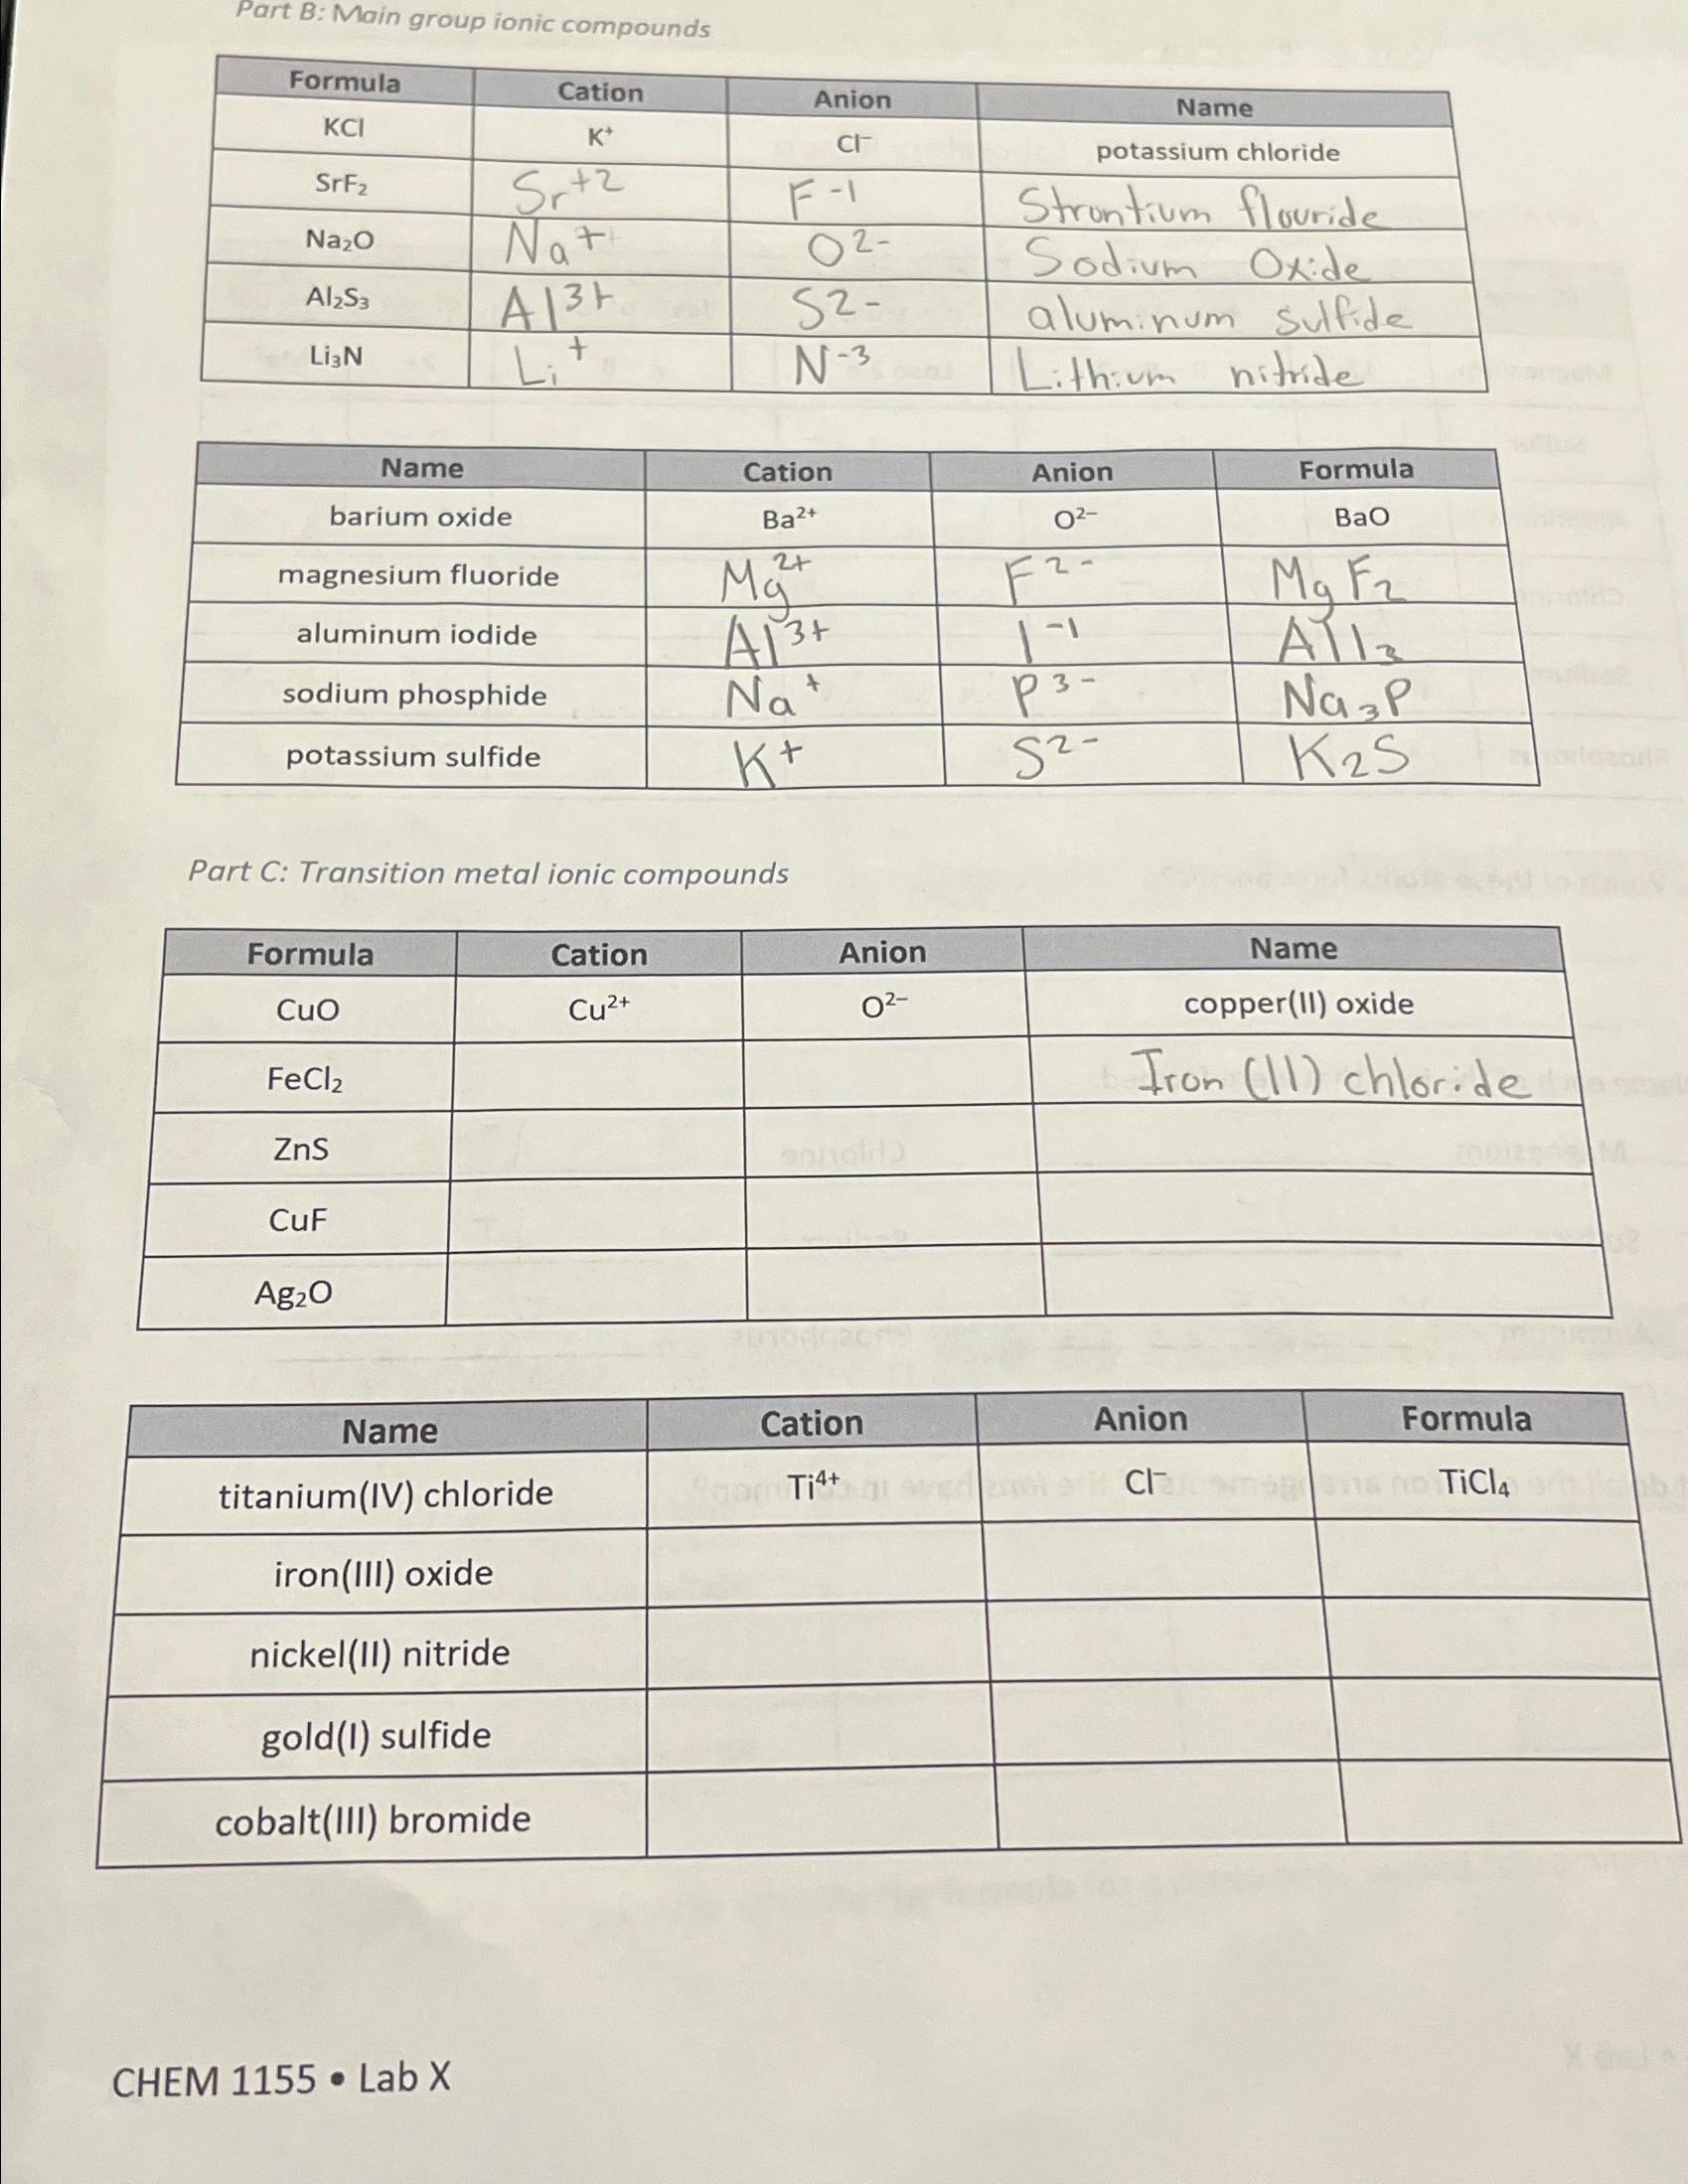 Part B: Main group ionic compounds
Formula Cation Anion Name
KCl K⁺ Cl⁻ potassium chloride
SrF₂ Sr⁺² F⁻¹ Strontium flouride
Na₂O Na⁺ O²⁻ Sodium Oxide
Al₂S₃ Al³⁺ S²⁻ aluminum sulfide
Li₃N Li⁺ N⁻³ Lithium nitride
Name Cation Anion Formula
barium oxide Ba²⁺ O²⁻ BaO
magnesium fluoride Mg²⁺ F²⁻ MgF₂
aluminum iodide Al³⁺ I⁻¹ AlI₃
sodium phosphide Na⁺ P³⁻ Na₃P
potassium sulfide K⁺ S²⁻ K₂S
Part C: Transition metal ionic compounds
Formula Cation Anion Name
CuO Cu²⁺ O²⁻ copper(II) oxide
FeCl₂ Iron (II) chloride
ZnS
CuF
Ag₂O
Name Cation Anion Formula
titanium(IV) chloride Ti⁴⁺ Cl⁻ TiCl₄
iron(III) oxide
nickel(II) nitride
gold(I) sulfide
cobalt(III) bromide
CHEM 1155 • Lab X